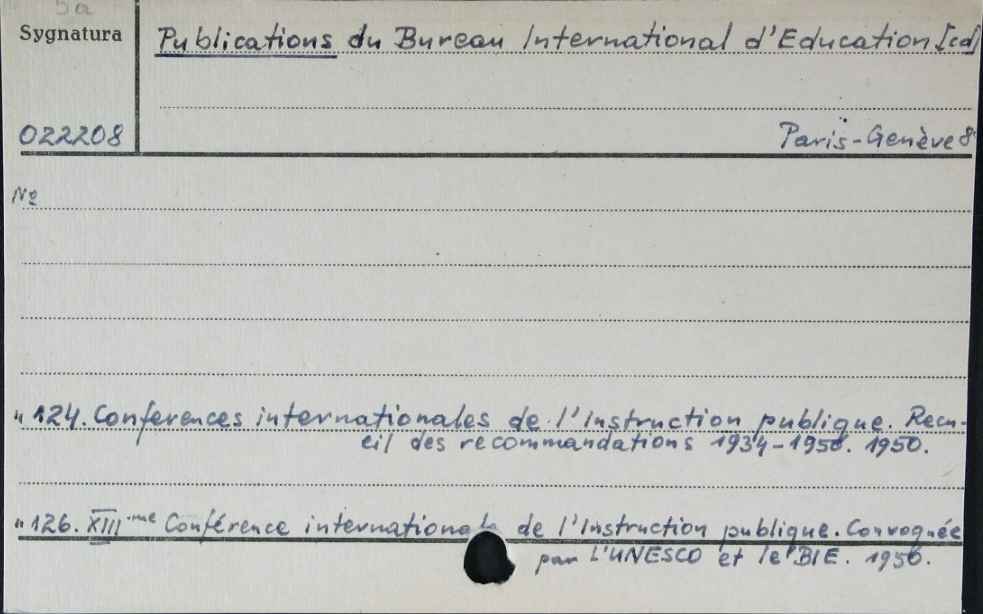 5a
Sygnatura
Publications du Bureau International d'Education [cd]
022208
Paris-Genève 8°
No
" 124. Conferences internationales de l'Instruction publique. Recu-
eil des recommandations 1934-1950. 1950.
" 126. XIII-me Conférence internationale de l'Instruction publique. Convoquée
par L'UNESCO et le BIE. 1950.